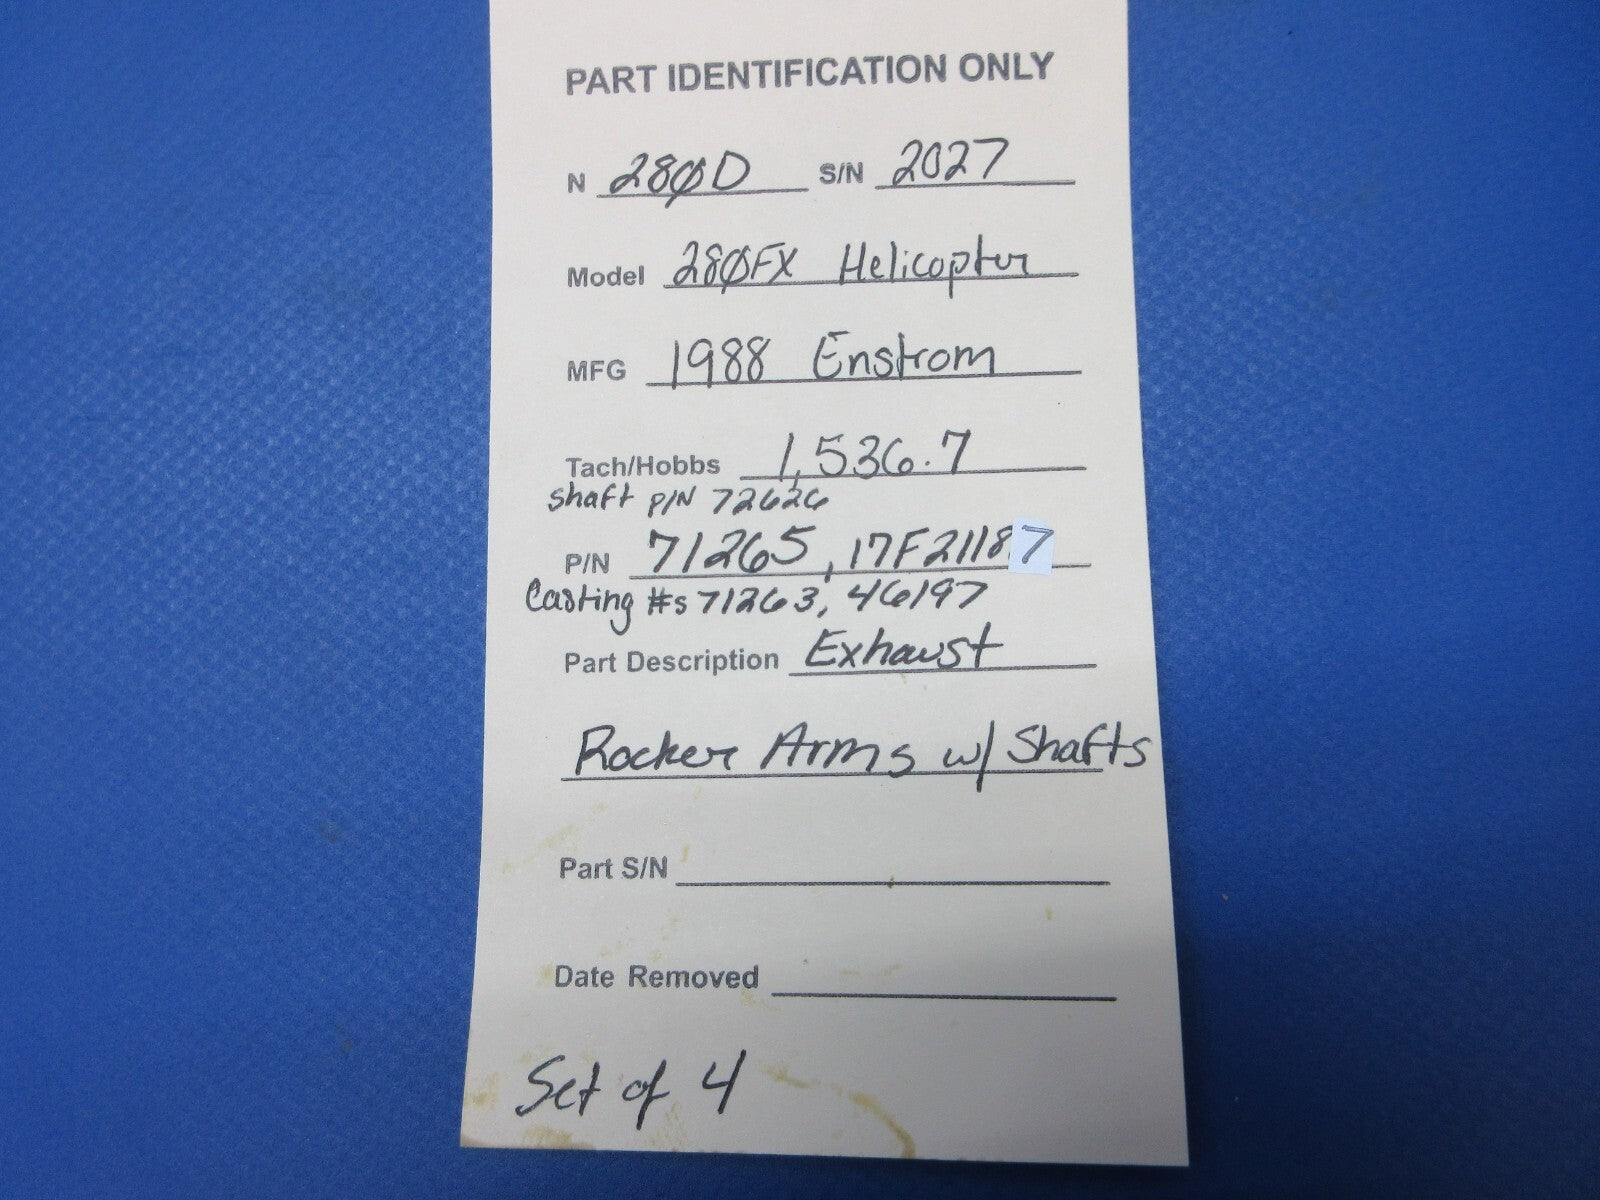 PART IDENTIFICATION ONLY
N 280D S/N 2027
Model 280FX Helicopter
MFG 1988 Enstrom
Tach/Hobbs 1,536.7
Shaft P/N 72626
P/N 71265, 17F21187
Casting #s 71263, 46197
Part Description Exhaust
Rocker Arms w/ Shafts
Part S/N
Date Removed
Set of 4